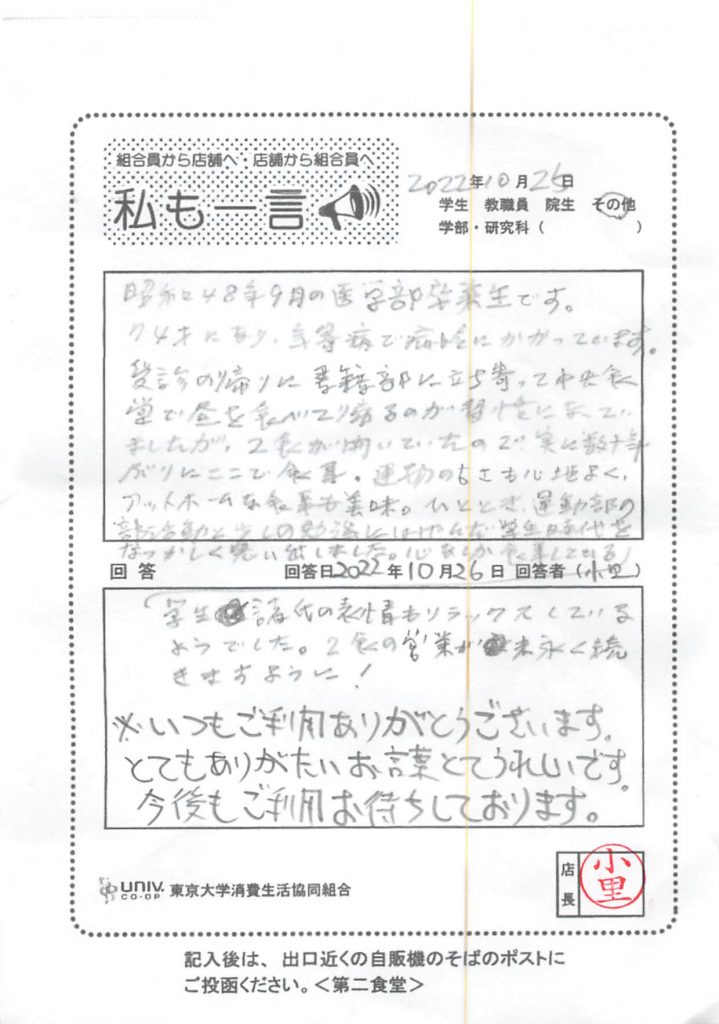 組合員から店舗へ・店舗から組合員へ
私も一言
2022年10月26日
学生 教職員 院生 その他
学部・研究科（ ）
昭和48年9月の医学部卒業生です。
74才になり、病で病院にかかっています。
受診の帰りに書籍部に立ち寄って中央食
堂で昼を食べて帰るのが習慣になってい
ましたが、2食が開いていたので実に数十年
ぶりにここで食事。建物の古さも心地よく、
アットホームな食事も美味。ひととき、運動部の
部活動と少しの勉強にはげんだ学生時代を
なつかしく思い出しました。心なしか食事している
回答 回答日2022年10月26日 回答者（小里）
学生諸氏の表情もリラックスしている
ようでした。2食の営業が末永く続
きますように！
※いつもご利用ありがとうございます。
とてもありがたいお言葉とてもうれしいです。
今後もご利用お待ちしております。
UNIV. CO-OP 東京大学消費生活協同組合
店長 小里
記入後は、出口近くの自販機のそばのポストに
ご投函ください。＜第二食堂＞